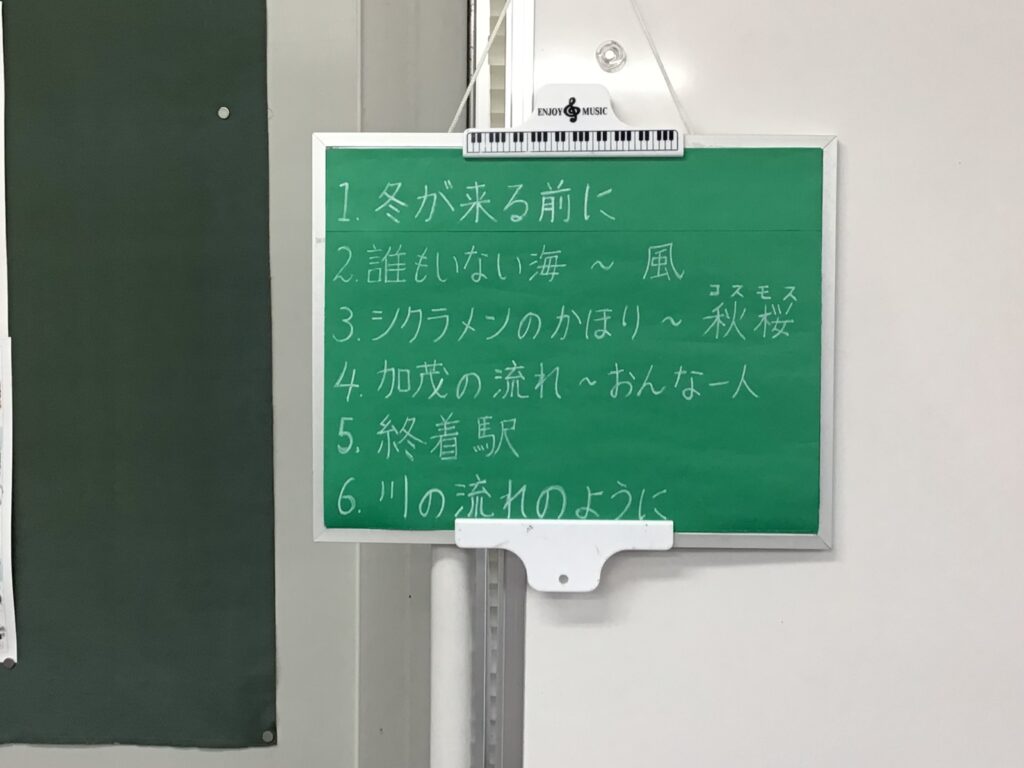 ENJOY MUSIC
1. 冬が来る前に
2. 誰もいない海 ~ 風
コスモス
3. シクラメンのかほり ~ 秋桜
4. 加茂の流れ ~ おんな一人
5. 終着駅
6. 川の流れのように